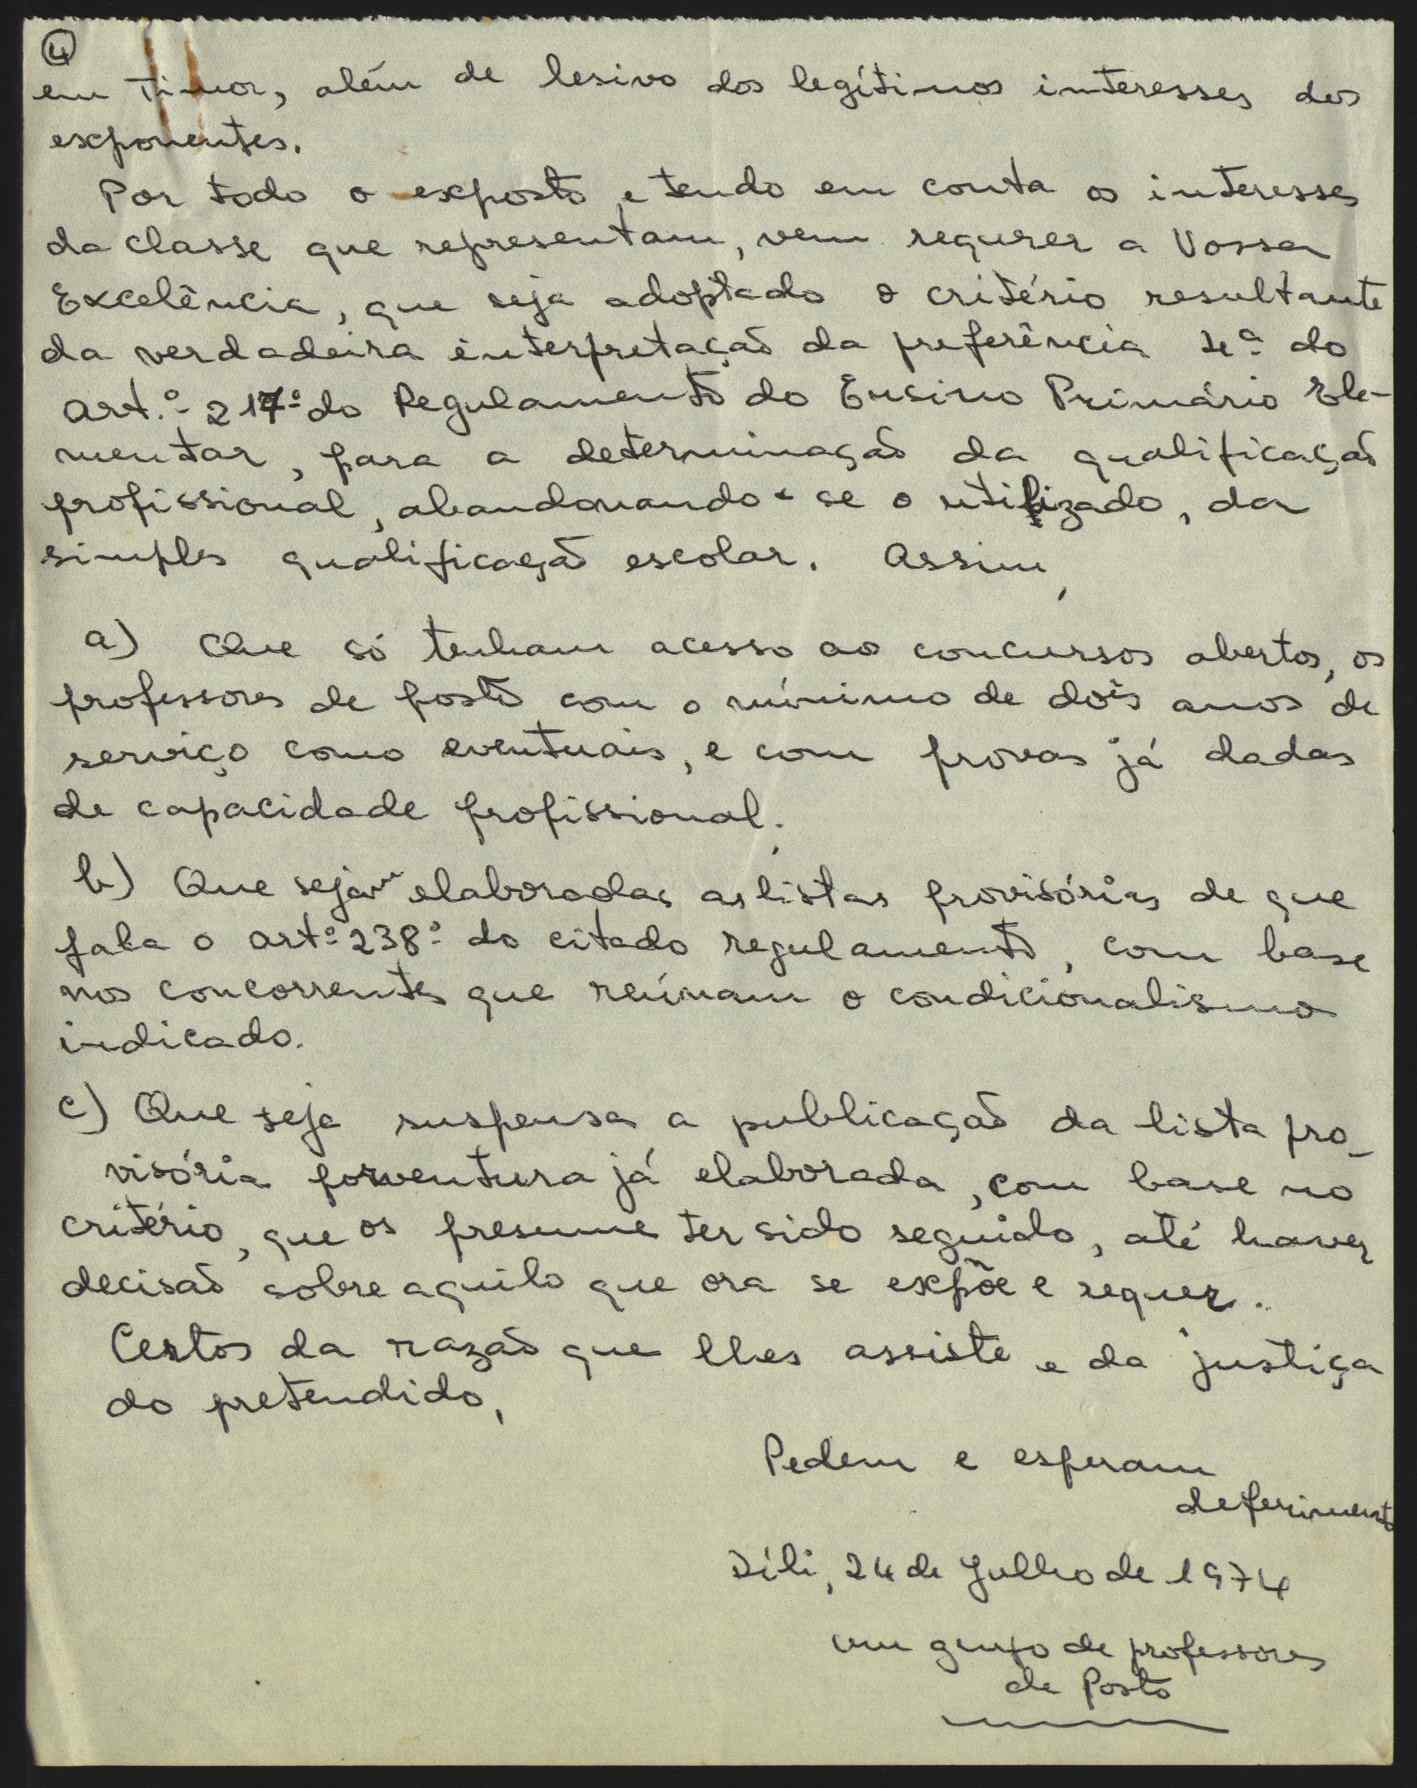 4
em Timor, além de lesivo dos legítimos interesses dos
exponentes.
Por todo o exposto e tendo em conta os interesses
da classe que representam, vem requrer a Vossa
Excelência, que seja adoptado o critério resultante
da verdadeira interpretação da preferência 4ª do
Art.º 217º do Regulamento do Ensino Primário Ele-
mentar, para a determinação da qualificação
profissional, abandonando-se o utilizado, da
simples qualificação escolar. Assim,
a) Que só tenham acesso aos concursos abertos, os
professores de posto com o mínimo de dois anos de
serviço como eventuais, e com provas já dadas
de capacidade profissional;
b) Que sejam elaboradas as listas provisórias de que
fala o artº 238º do citado regulamento, com base
nos concorrentes que reúnam o condicionalismo
indicado.
c) Que seja suspensa a publicação da lista pro-
visória porventura já elaborada, com base no
critério, que os presume ter sido seguido, até haver
decisão sobre aquilo que ora se expõe e requer.
Certos da razão que lhes assiste e da justiça
do pretendido,
Pedem e esperam
deferimento
Díli, 24 de Julho de 1974
um grupo de professores
de Posto